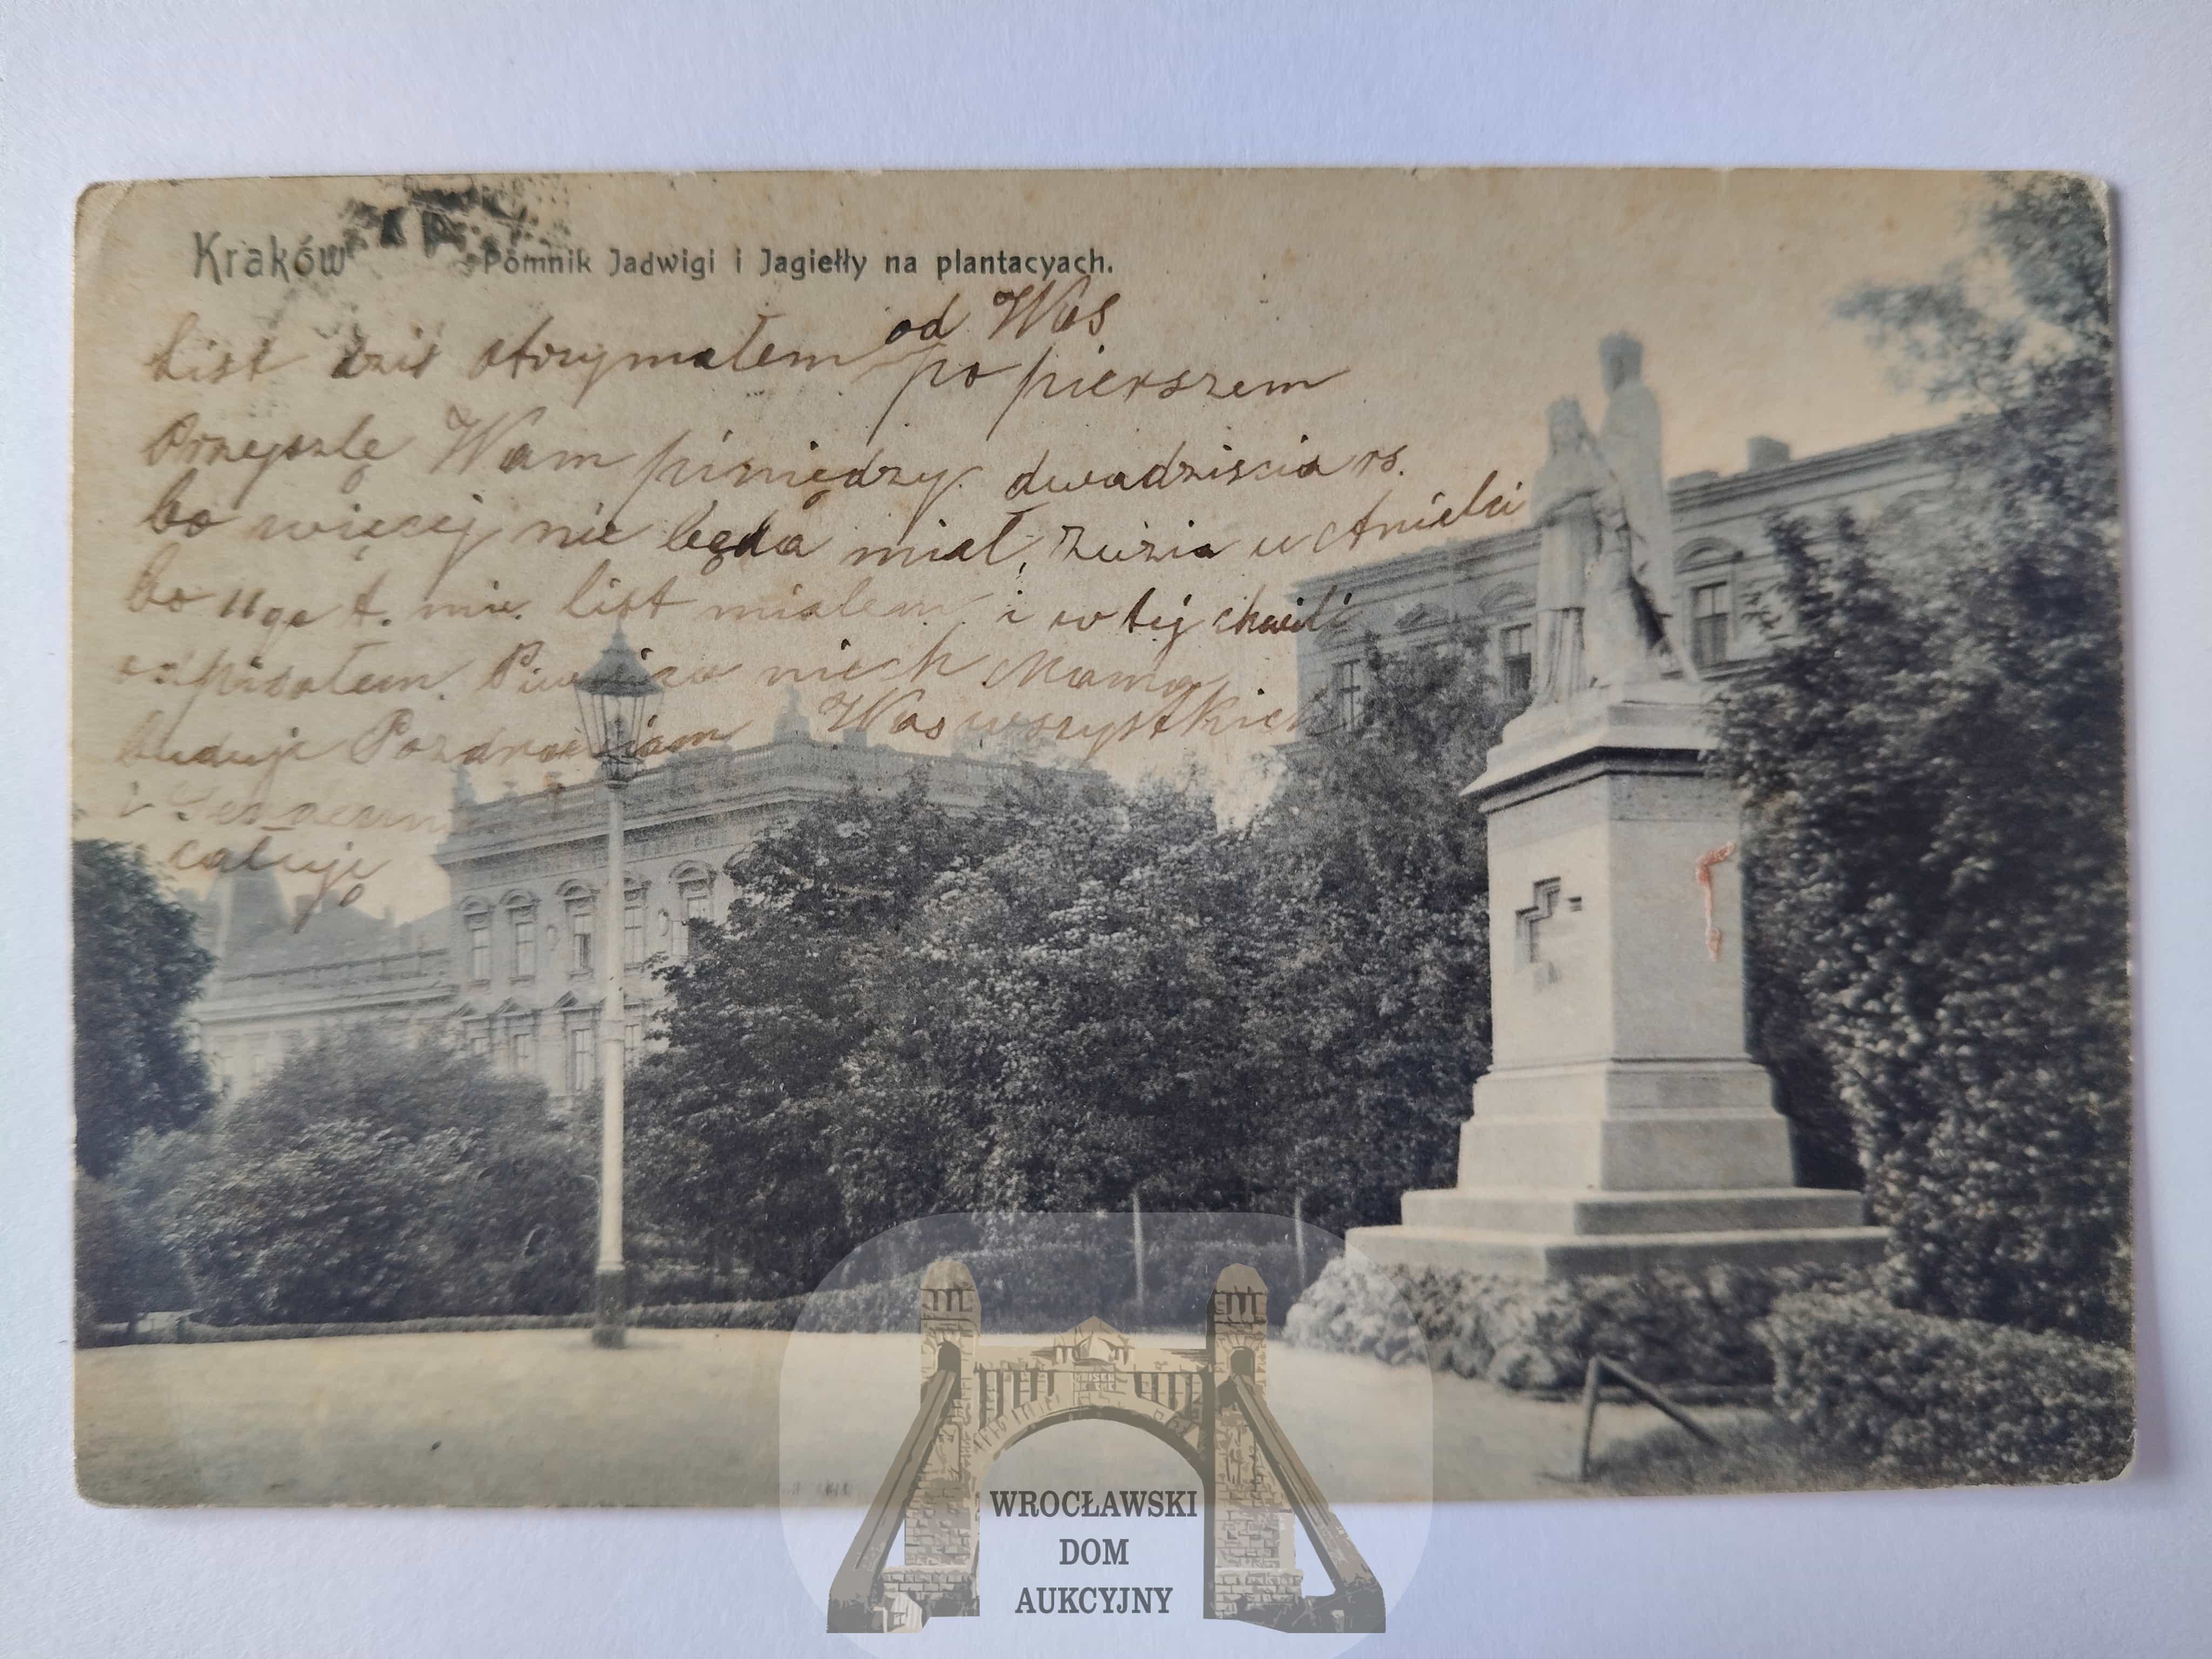 Kraków
Pomnik Jadwigi i Jagiełły na plantacyach.
List dziś otrzymałem od Was
po pierszem
Przeyszlę Wam piniędzy dwadziscia rs.
bo więcej nie będa miał, Zuzia u Anielci
bo 11go t. mie. list miałem i w tej chwili
odpisałem. niech Mama
buduje Pozdrawiam Was wszystkich
i
całuję
WROCŁAWSKI
DOM
AUKCYJNY